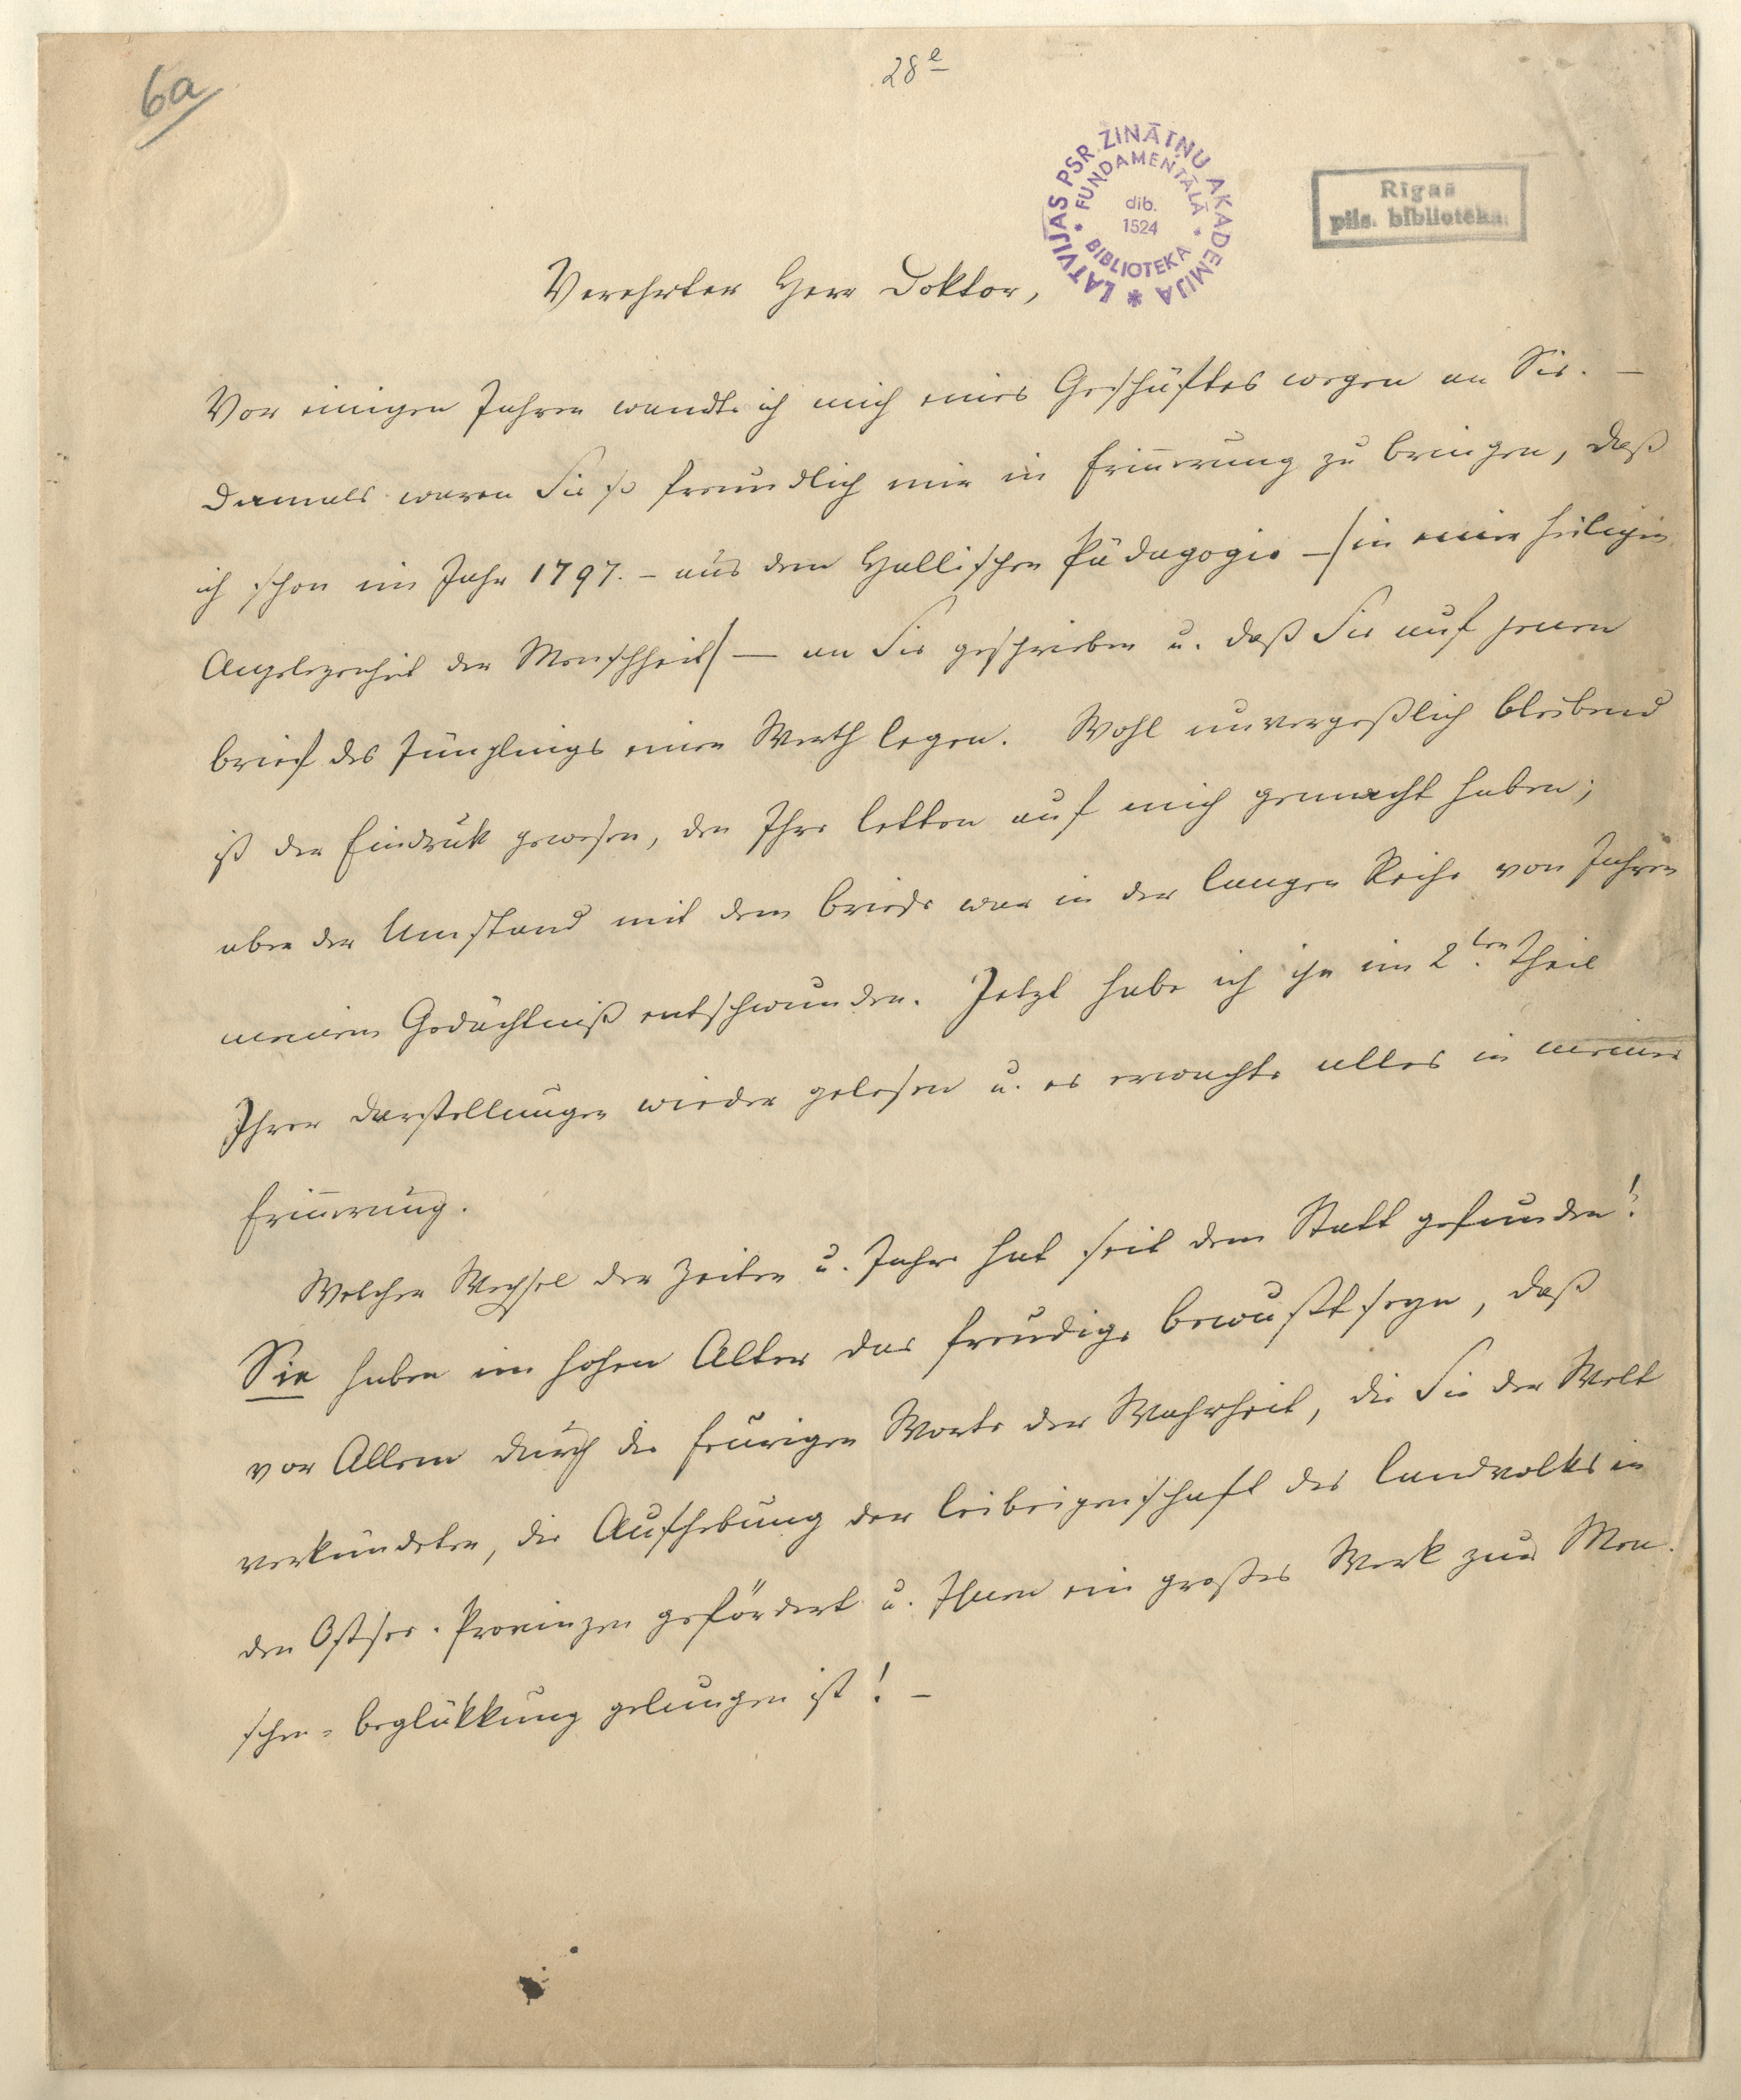 6a
28e
LATVIJAS PSR ZINĀTŅU AKADEMIJA
FUNDAMENTĀLĀ
BIBLIOTEKA
dib.
1524
Rīgas
pils. bibliotēka.
Verehrter Herr Doktor,
Vor einigen Jahren wandte ich mich eines Geschäftes wegen an Sie. –
Damals waren Sie so freundlich mir in Erinnerung zu bringen, daß
ich schon im Jahr 1797. – aus dem Hallischen Pädagogio – /in einer heiligen
Angelegenheit der Menschheit/ — an Sie geschrieben u. daß Sie auf jenen
Brief des Jünglings einen Werth legen. Wohl unvergeßlich bleibend
ist der Eindruk gewesen, den Ihre Letten auf mich gemacht haben;
aber der Umstand mit dem Briefe war in der langen Reihe von Jahren
meinem Gedächtniß entschwunden. Jetzt habe ich ihn im 2ten Theil
Ihrer Darstellungen wieder gelesen u. es erwachte alles in meiner
Erinnerung.
Welcher Wechsel der Zeiten u. Jahre hat seit dem Statt gefunden!
Sie haben im hohen Alter das freudige Bewußtseyn, daß
vor Allem durch die feurigen Worte der Wahrheit, die Sie der Welt
verkündeten, die Aufhebung der Leibeigenschaft des Landvolks in
den Ostsee-Provinzen gefördert u. Ihnen ein großes Werk zur Men-
schen-Beglükkung gelungen ist! –